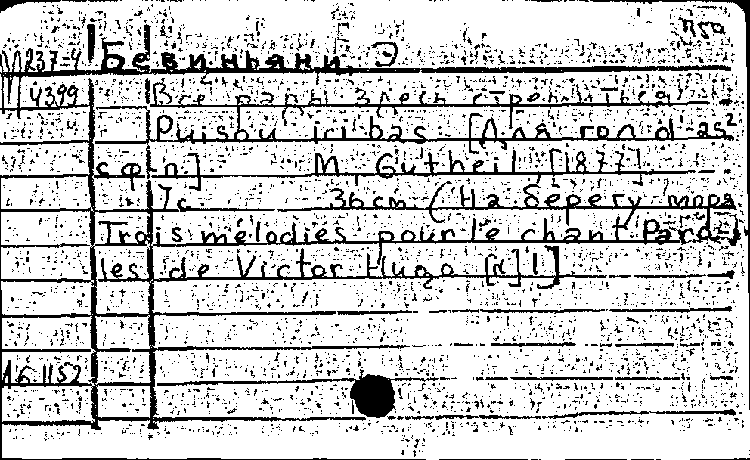 П50
М 237-4 Бевиньяни, Э.
4399 Все рады здесь стремиться
Puisqu' ici bas. [Для гол. d' as²
с ф-п.]. M. Gutheil, [1877].
7 с. 36 cm (На берегу моря
Trois mélodies pour le chant Paro-
les de Victor Hugo [№] 1]
А6 1152